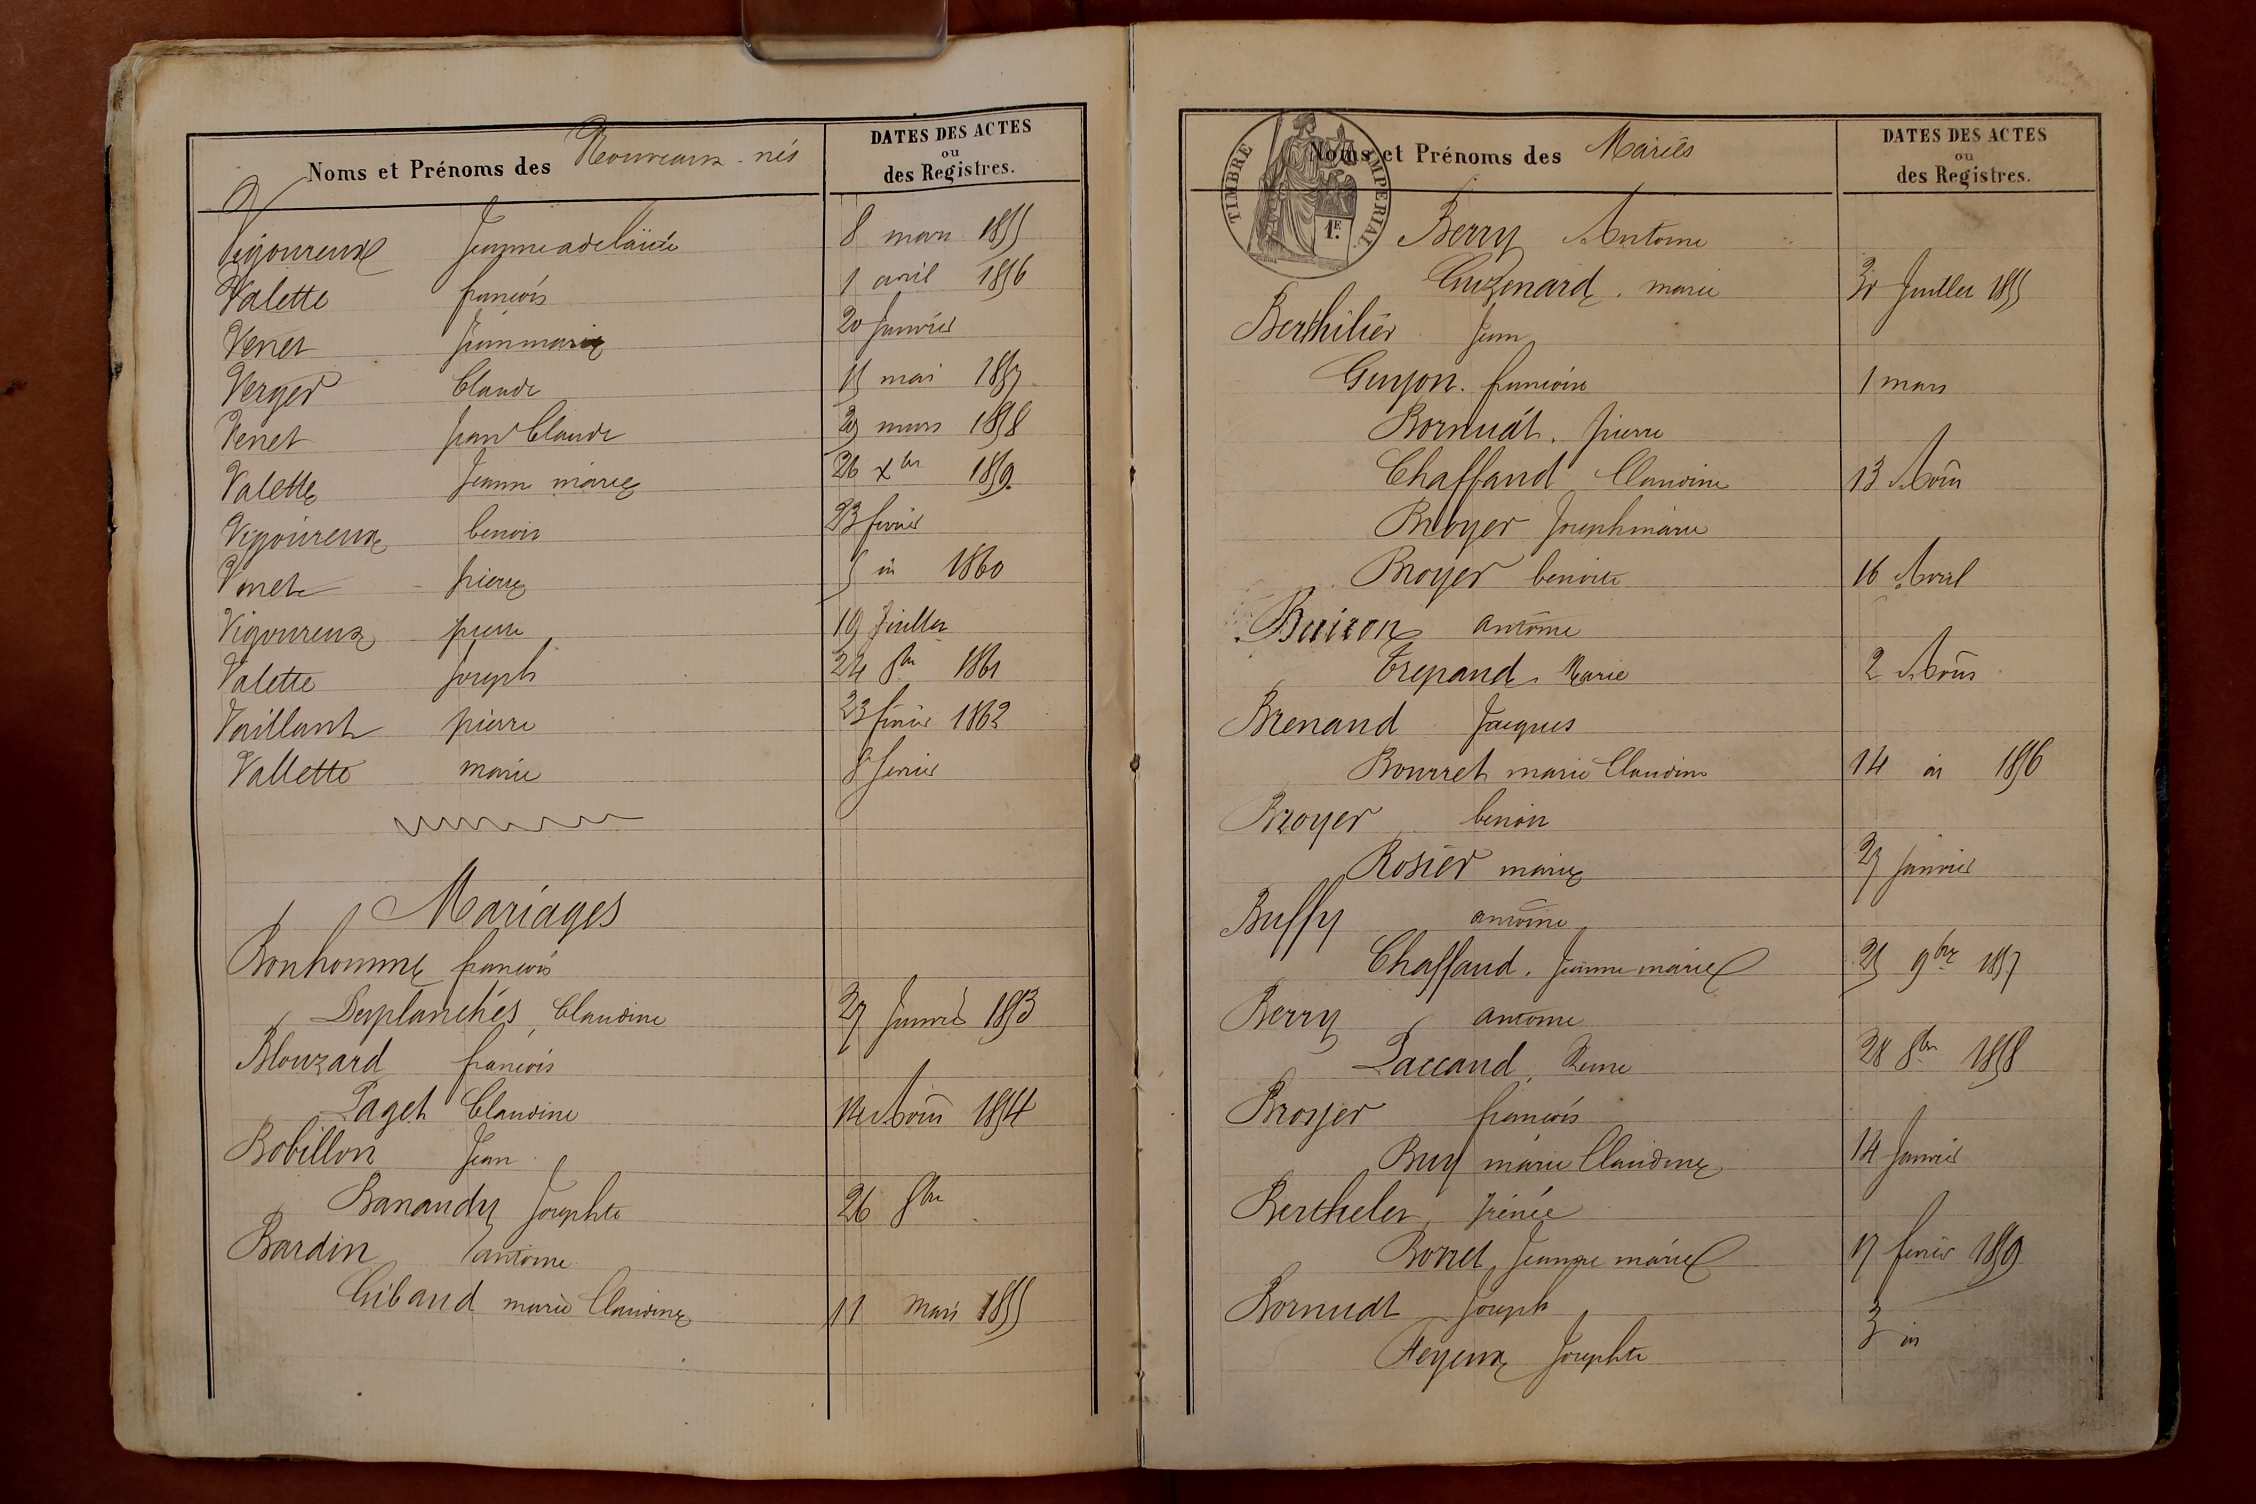 Noms et Prénoms des Nouveaux-nés
DATES DES ACTES
ou
des Registres.
V
Vigoureux Jeanne adelaïde 8 mars 1855
Valette francois 1 avril 1856
Venet Jeanmarie 20 Janvier
Verger Claude 15 mai 1857
Venet jean Claude 29 mars 1858
Valette Jeanne marie 26 xbre 1859
Vigoureux benoit 23 fevrier
Venet pierre 5 id 1860
Vigoureux pierre 19 Juillet
Valette Joseph 24 8bre 1861
Vaillant pierre 23 fevrier 1862
Vallette marie 8 fevrier
Mariages
Bonhomme francois
Desplanches, Claudine 27 Janvier 1853
Blouzard francois
Paget Claudine Août 1854
Bobillon Jean
Banandy Josephte 26 8bre
Bardin antoine
Gibaud marie Claudine 11 Mars 1855
Noms et Prénoms des Mariés
DATES DES ACTES
ou
des Registres.
TIMBRE IMPERIAL
1E.
Berry Antoine
Guzenard. marie Juillet 1855
Berthilier Jean
Guyon. francoise 1 mars
Bornuat. pierre
Chaffaud Claudine 13 Août
Broyer Joseph marie
Broyer benoite 16 Avril
Buiron antoine
Trepand. Marie 2 Août
Brenand Jacques
Bourret marie Claudine 14 id 1856
Broyer benoit
Rosier marie 27 janvier
Buffy antoine
Chaffaud. Jeanne marie 25 9bre 1857
Berry antoine
Paccand, Reine 28 8bre 1858
Broyer francois
Buy marie Claudine 14 Janvier
Berthelet Irénée
Borret Jeanne marie 17 fevrier 1859
Bornuat Joseph
Feyeux Josephte 3 id